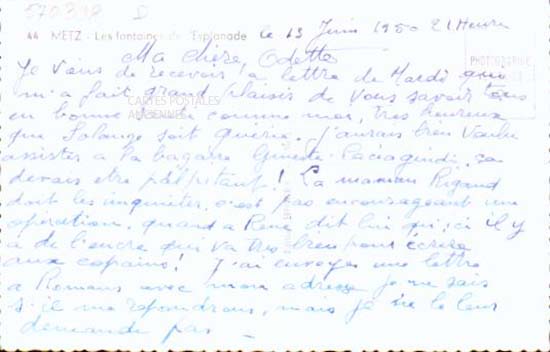 570398 D
44 METZ - Les fontaines de l'Esplanade le 13 Juin 1950 21 Heures
PHOTOGRAPHIE
Ma chère Odette
Je viens de recevoir ta lettre de Mardi qui
m'a fait grand plaisir de vous savoir tous
en bonne santé comme moi, très heureux
CARTES POSTALES
ANCIENNES
que Solange soit guérie. J'aurais bien voulu
assister a la bagarre ça
devais etre palpitant! La maman Rigaud
doit les inquieter, c'est pas encourageant une
opération, quand a René dit lui qu'ici il y
a de l'encre qui va très bien pour écrire
aux copains! J'ai envoyer une lettre
a Romans avec mon adresse je ne sais
s'il me repondrons, mais je ne le leur
demande pas